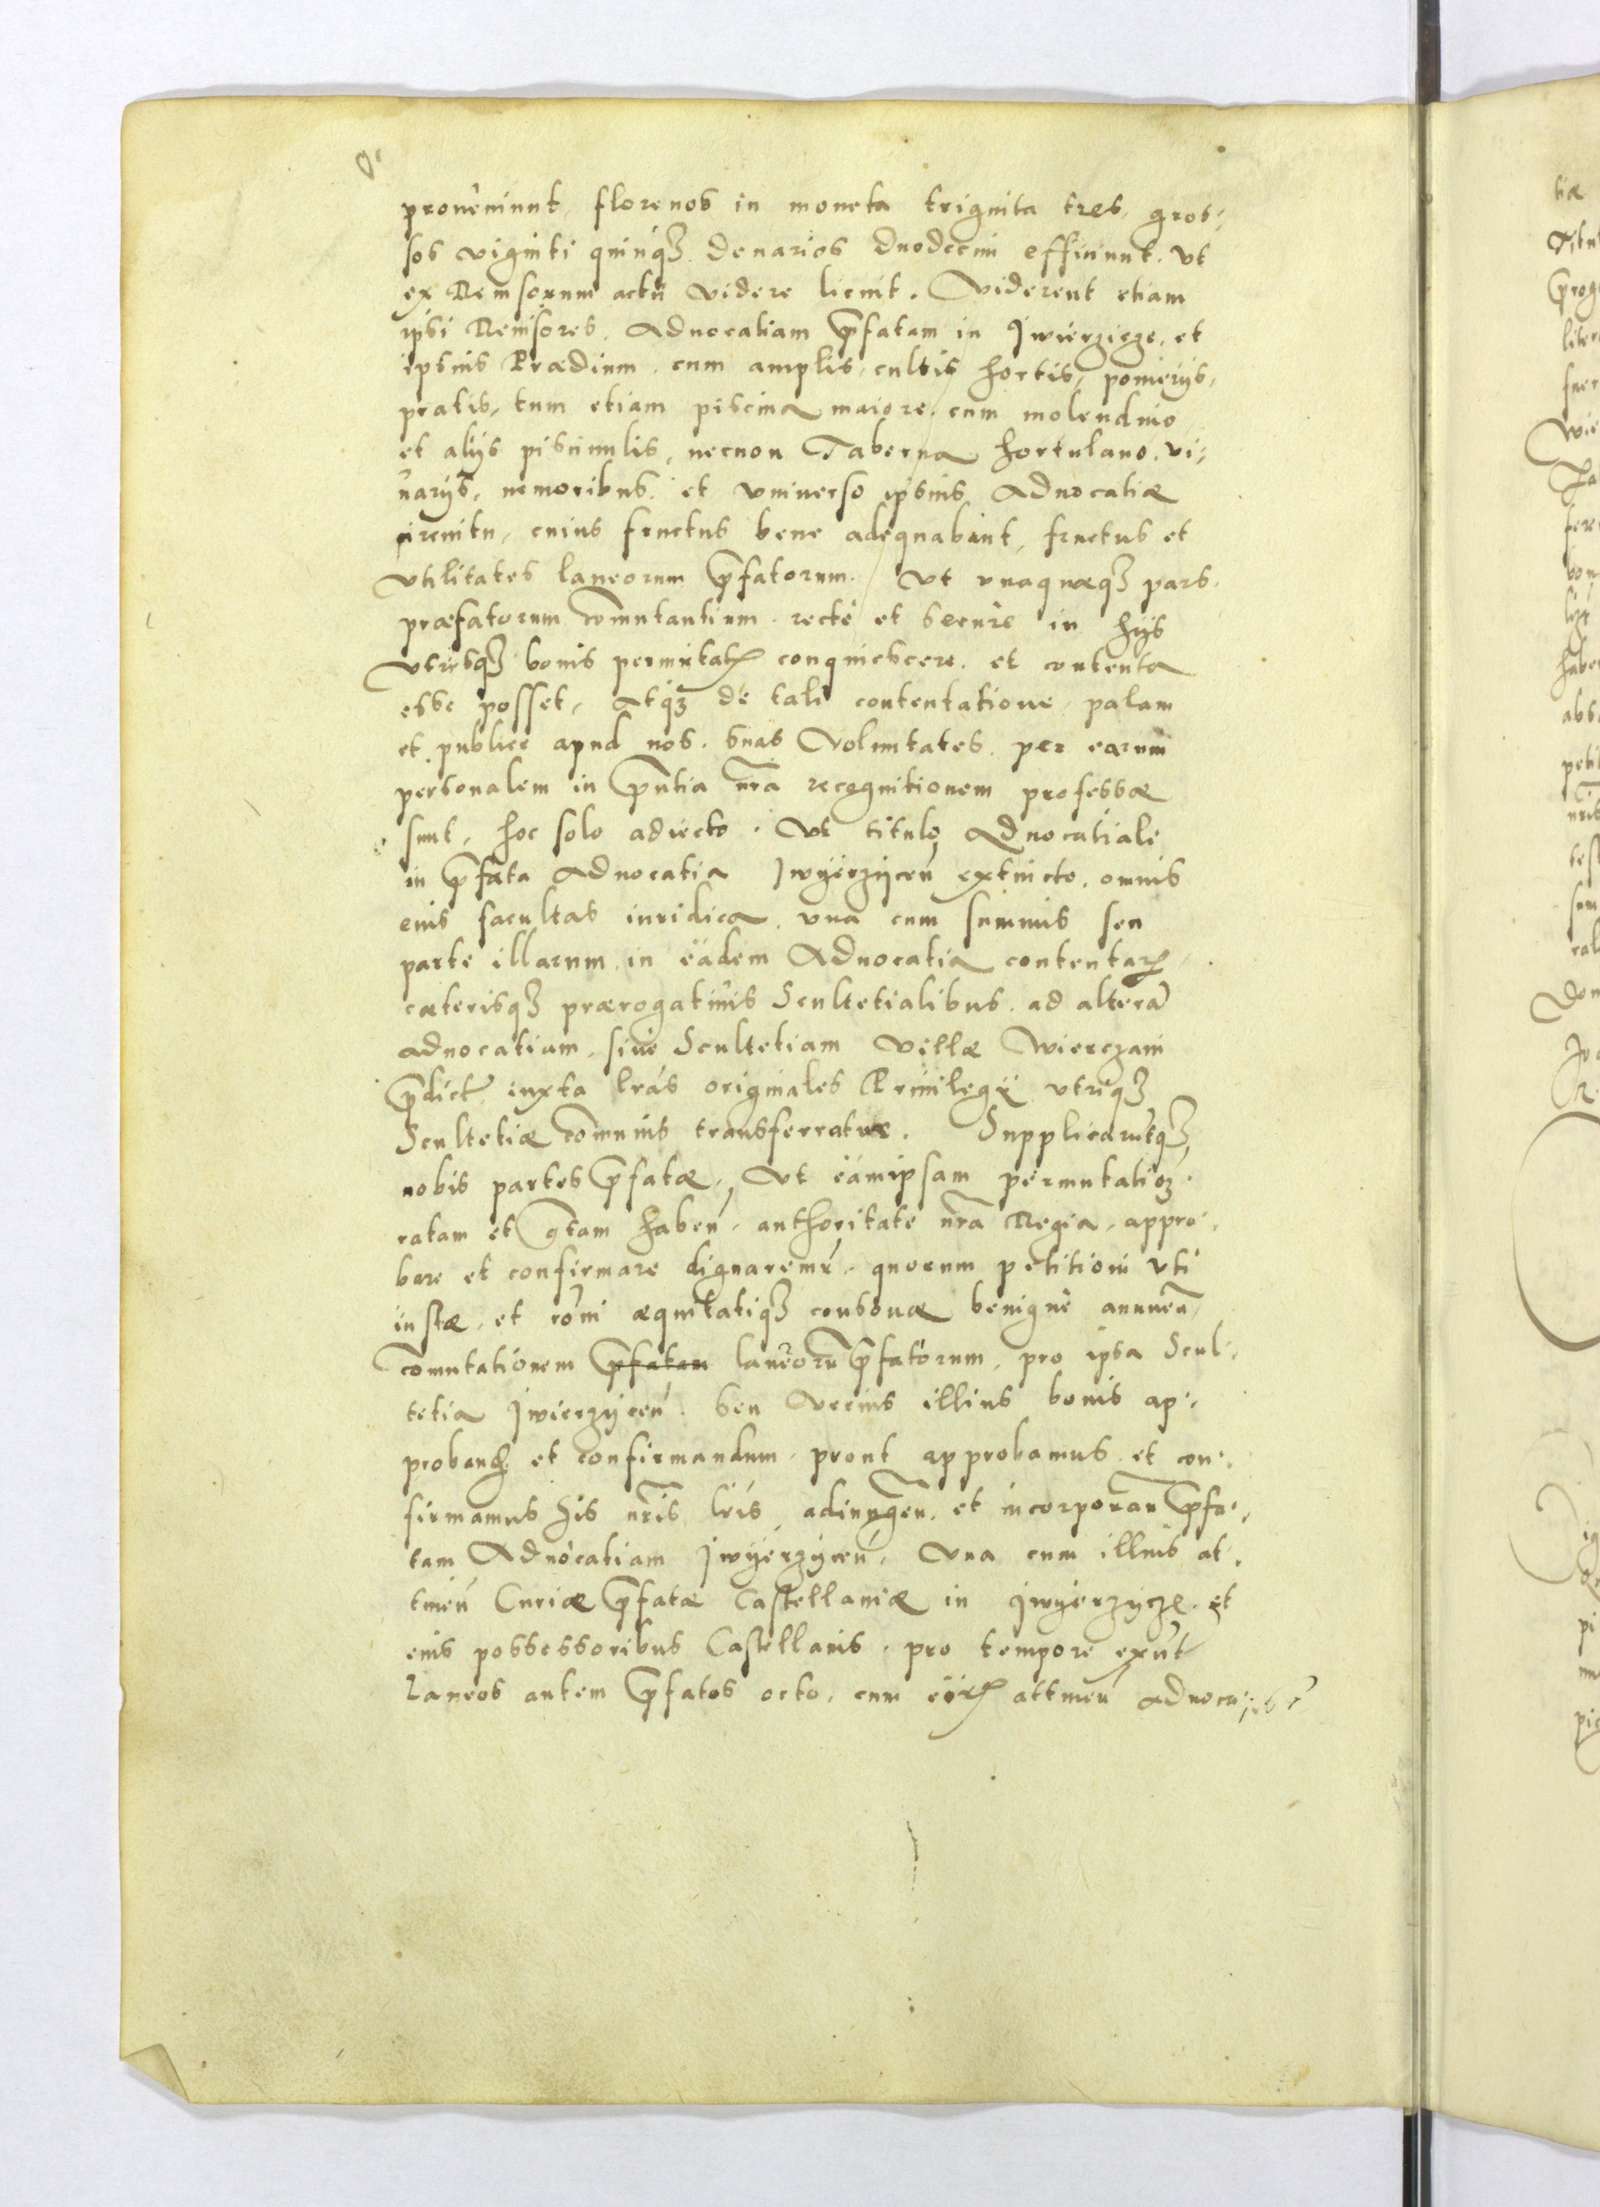 proueniunt, florenos in moneta triginta tres, gros-
sos viginti quinqꝫ denarios duodecim efficiunt. vt
ex Reuisorum actu videre licuit. Viderent etiam
ipsi Reuisores, Aduocatiam p̄fatam in Jwierzicze, et
ipsius Prædium, cum amplis, cultis hortis, pomerijs,
pratis, tum etiam piscina maiore, cum molendino
et alijs piscinulis, necnon Taberna hortulano, vi-
narijs, nemoribus, et vniuerso ipsius Aduocatiæ
circuitu, cuius fructus bene adequabant, fructus et
vtilitates laneorum p̄fatorum. Vt vnaquæqꝫ pars
præfatorum com̄utantium, recte et secure in hijs
vtrisqꝫ bonis permutatꝝ conquiescere, et contenta
esse posset, atqꝫ de tali contentatione, palam
et publice apud nos, suas voluntates, per earum
personalem in p̄ntia nr̄a recognitionem professæ
sunt, hoc solo adiecto. Vt titulo Aduocatiali
in p̄fata Aduocatia Jwyerzyceń extincto, omnis
eius facultas iuridica, vna cum summis seu
parte illarum in eadem Aduocatia contentaꝝ,
cæterisqꝫ prærogatiuis Scultetialibus, ad alterā
aduocatiam, siue Scultetiam villæ Wierczani
p̄dict. iuxta lrās originales Priuilegij vtriqꝫ
Scultetiæ com̄unis transferratur. Supplicarūtqꝫ
nobis partes p̄fatæ, Vt eamipsam permutatioꝫ
ratam et gr̄tam habeń, authoritate nr̄a Regia, appro-
bare et confirmare dignaremur, quorum petitioni vti
iustæ, et rōni æquitatiqꝫ consonæ benigne annueń,
com̄utationem p̄fatam laneorū p̄fatorum, pro ipsa Scul-
tetia Jwierzyceń. seu verius illius bonis ap-
probanꝺ et confirmandum, prout approbamus et con-
firmamus his nr̄is lr̄is, adiungeń, et incorporań p̄fa-
tam Aduocatiam Jwyerzyceń, vna cum illius at-
tineń Curiæ p̄fatæ Castellaniæ in Jwyerzycze, et
eius possessoribus Castellanis, pro tempore exn̄t
Laneos autem p̄fatos octo, cum eorꝝ attineń Aduoca-